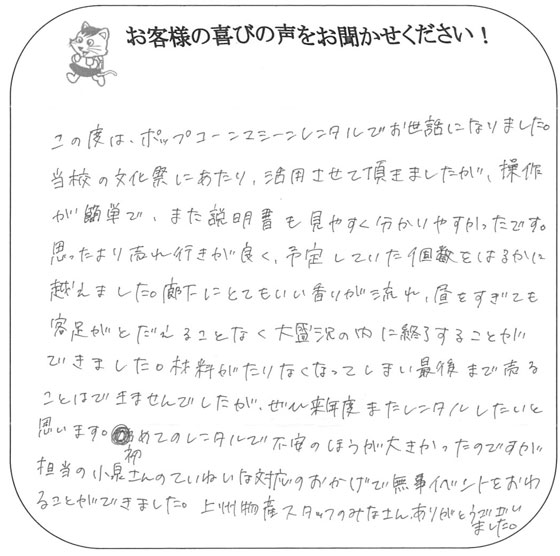 お客様の喜びの声をお聞かせください！
この度は、ポップコーンマシーンレンタルでお世話になりました。
当校の文化祭にあたり、活用させて頂きましたが、操作
が簡単で、また説明書も見やすく分かりやすかったです。
思ったより売れ行きが良く、予定していた個数をはるかに
越えました。廊下にとてもいい香りが流れ、昼をすぎても
客足がとだえることなく大盛況の内に終了することが
できました。材料がたりなくなってしまい最後まで売る
ことはできませんでしたが、ぜひ来年度またレンタルしたいと
思います。初めてのレンタルで不安のほうが大きかったのですが
担当の小泉さんのていねいな対応のおかげで無事イベントをおわ
ることができました。上州物産スタッフのみなさん、ありがとうござい
ました。